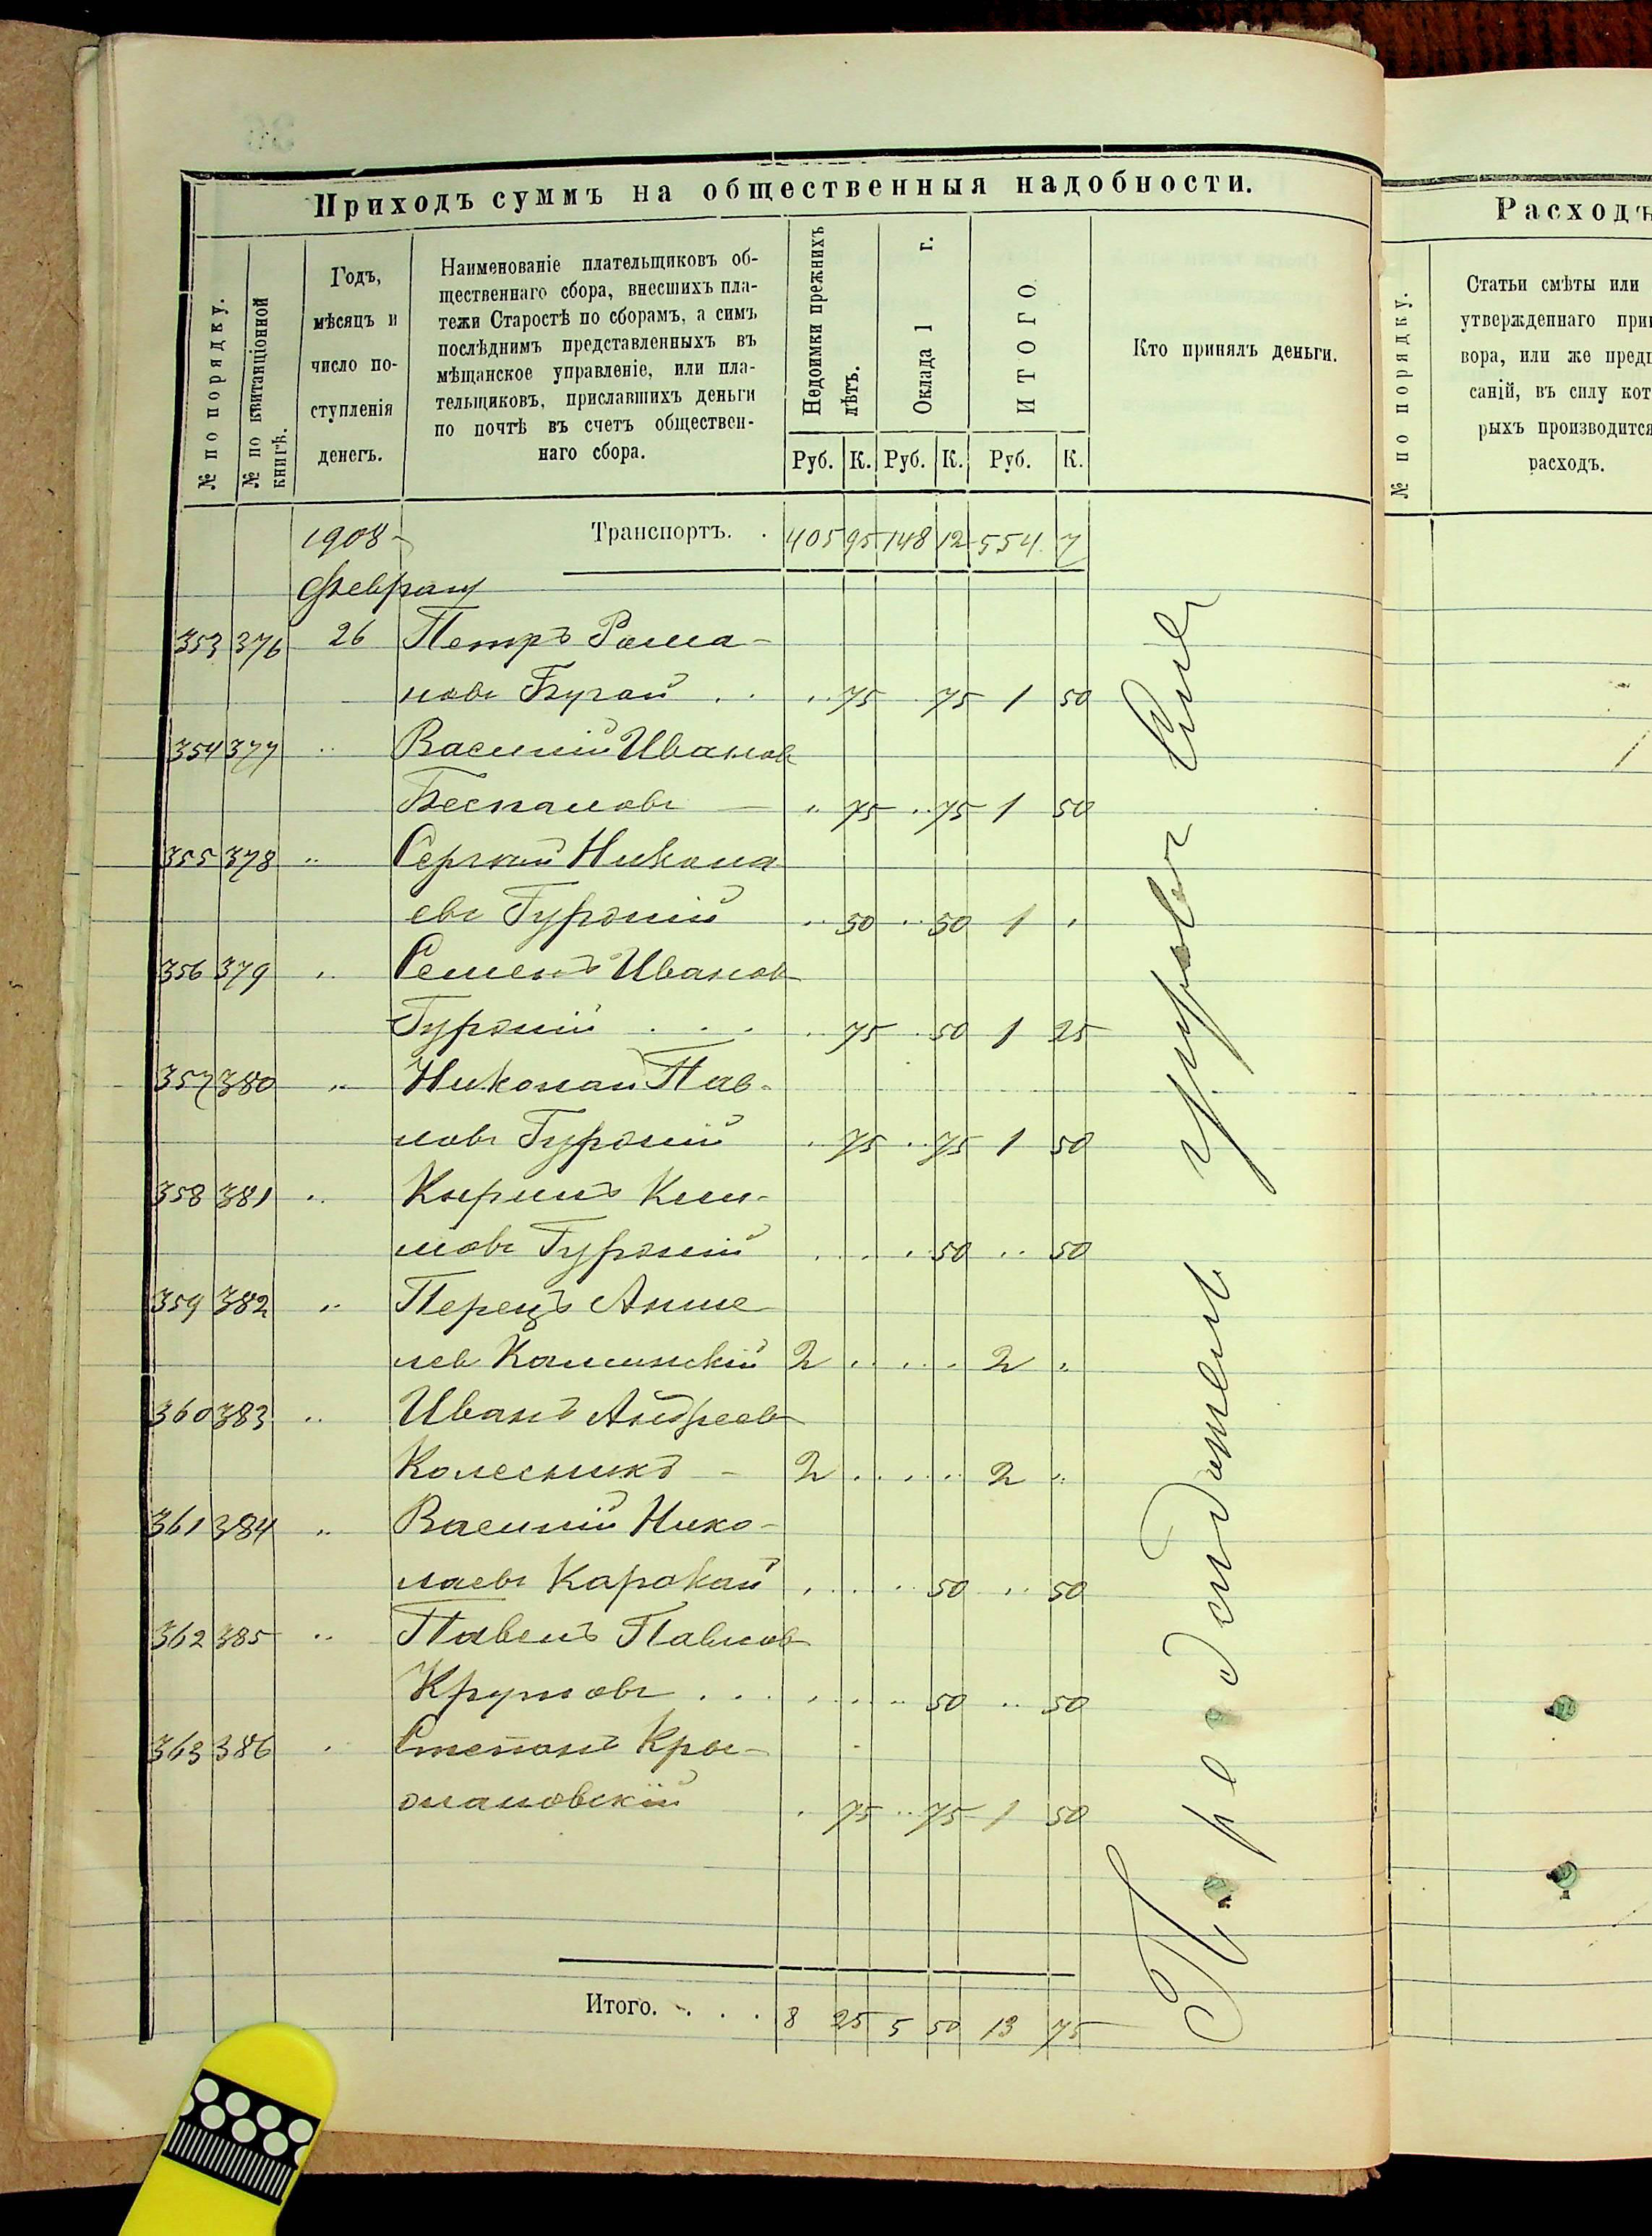 Приходъ суммъ на общественныя надобности.
№ по порядку.
№ по квитанціонной
книгѣ.
Годъ,
мѣсяцъ и
число по-
ступленія
денегъ.
Наименованіе плательщиковъ об-
щественнаго сбора, внесшихъ пла-
тежи Старостѣ по сборамъ, а симъ
послѣднимъ представленныхъ въ
мѣщанское управленіе, или пла-
тельщиковъ, приславшихъ деньги
по почтѣ въ счетъ обществен-
наго сбора.
Недоимки прежнихъ
лѣтъ.
Оклада 1 г.
ИТОГО.
Руб. К. Руб. К. Руб. К.
Кто принялъ деньги.
1908 Транспортъ. . 405 95 148 12 554 7
Февраля
353 376 26 Петръ Рома-
новъ Бугай . . .. 75 .. 75 1 50
354 377 .. Василій Иванов
Беспаловъ — .. 75 .. 75 1 50
355 378 .. Сергѣй Никола
евъ Гуржій .. 50 .. 50 1 ..
356 379 .. Семенъ Иванов
Гуржій . . . .. 75 .. 50 1 25
357 380 .. Николай Пав-
ловъ Гуржій . 75 .. 75 1 50
358 381 .. Кирилъ Кли-
мовъ Гуржій . . . . 50 .. 50
359 382 .. Перецъ Анше
лев Каминскій 2 . . . . 2 ..
360 383 .. Иванъ Андреев
Колесникъ — 2 . . . . 2 ..
361 384 .. Василій Нико-
лаевъ Карокай . . . .. 50 .. 50
362 385 .. Павелъ Павлов
Круповъ . . . . . . .. 50 .. 50
363 386 . Степанъ Кры-
жановскій . 75 .. 75 1 50
Итого. . . . 8 25 5 50 13 75
Предсѣдатель
Расходъ
№ по порядку.
Статьи смѣты или
утвержденнаго при
вора, или же пред
саній, въ силу кот
рыхъ производится
расходъ.